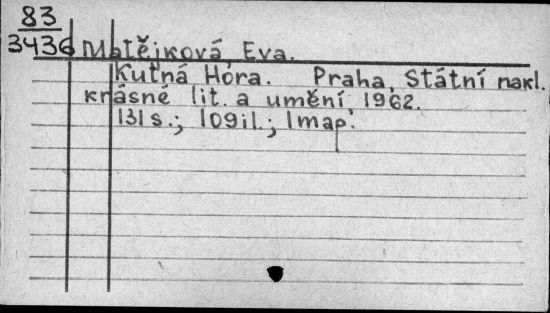 83
3436 Matějková, Eva.
Kutná Hora. Praha, Státní nakl.
krásné lit. a umění, 1962.
131 s.; 109 il.; 1 map.